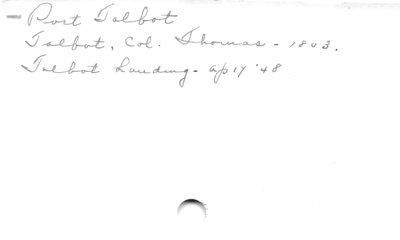 - Port Talbot
Talbot, Col. Thomas - 1803.
Talbot Landing - Ap 17 '48